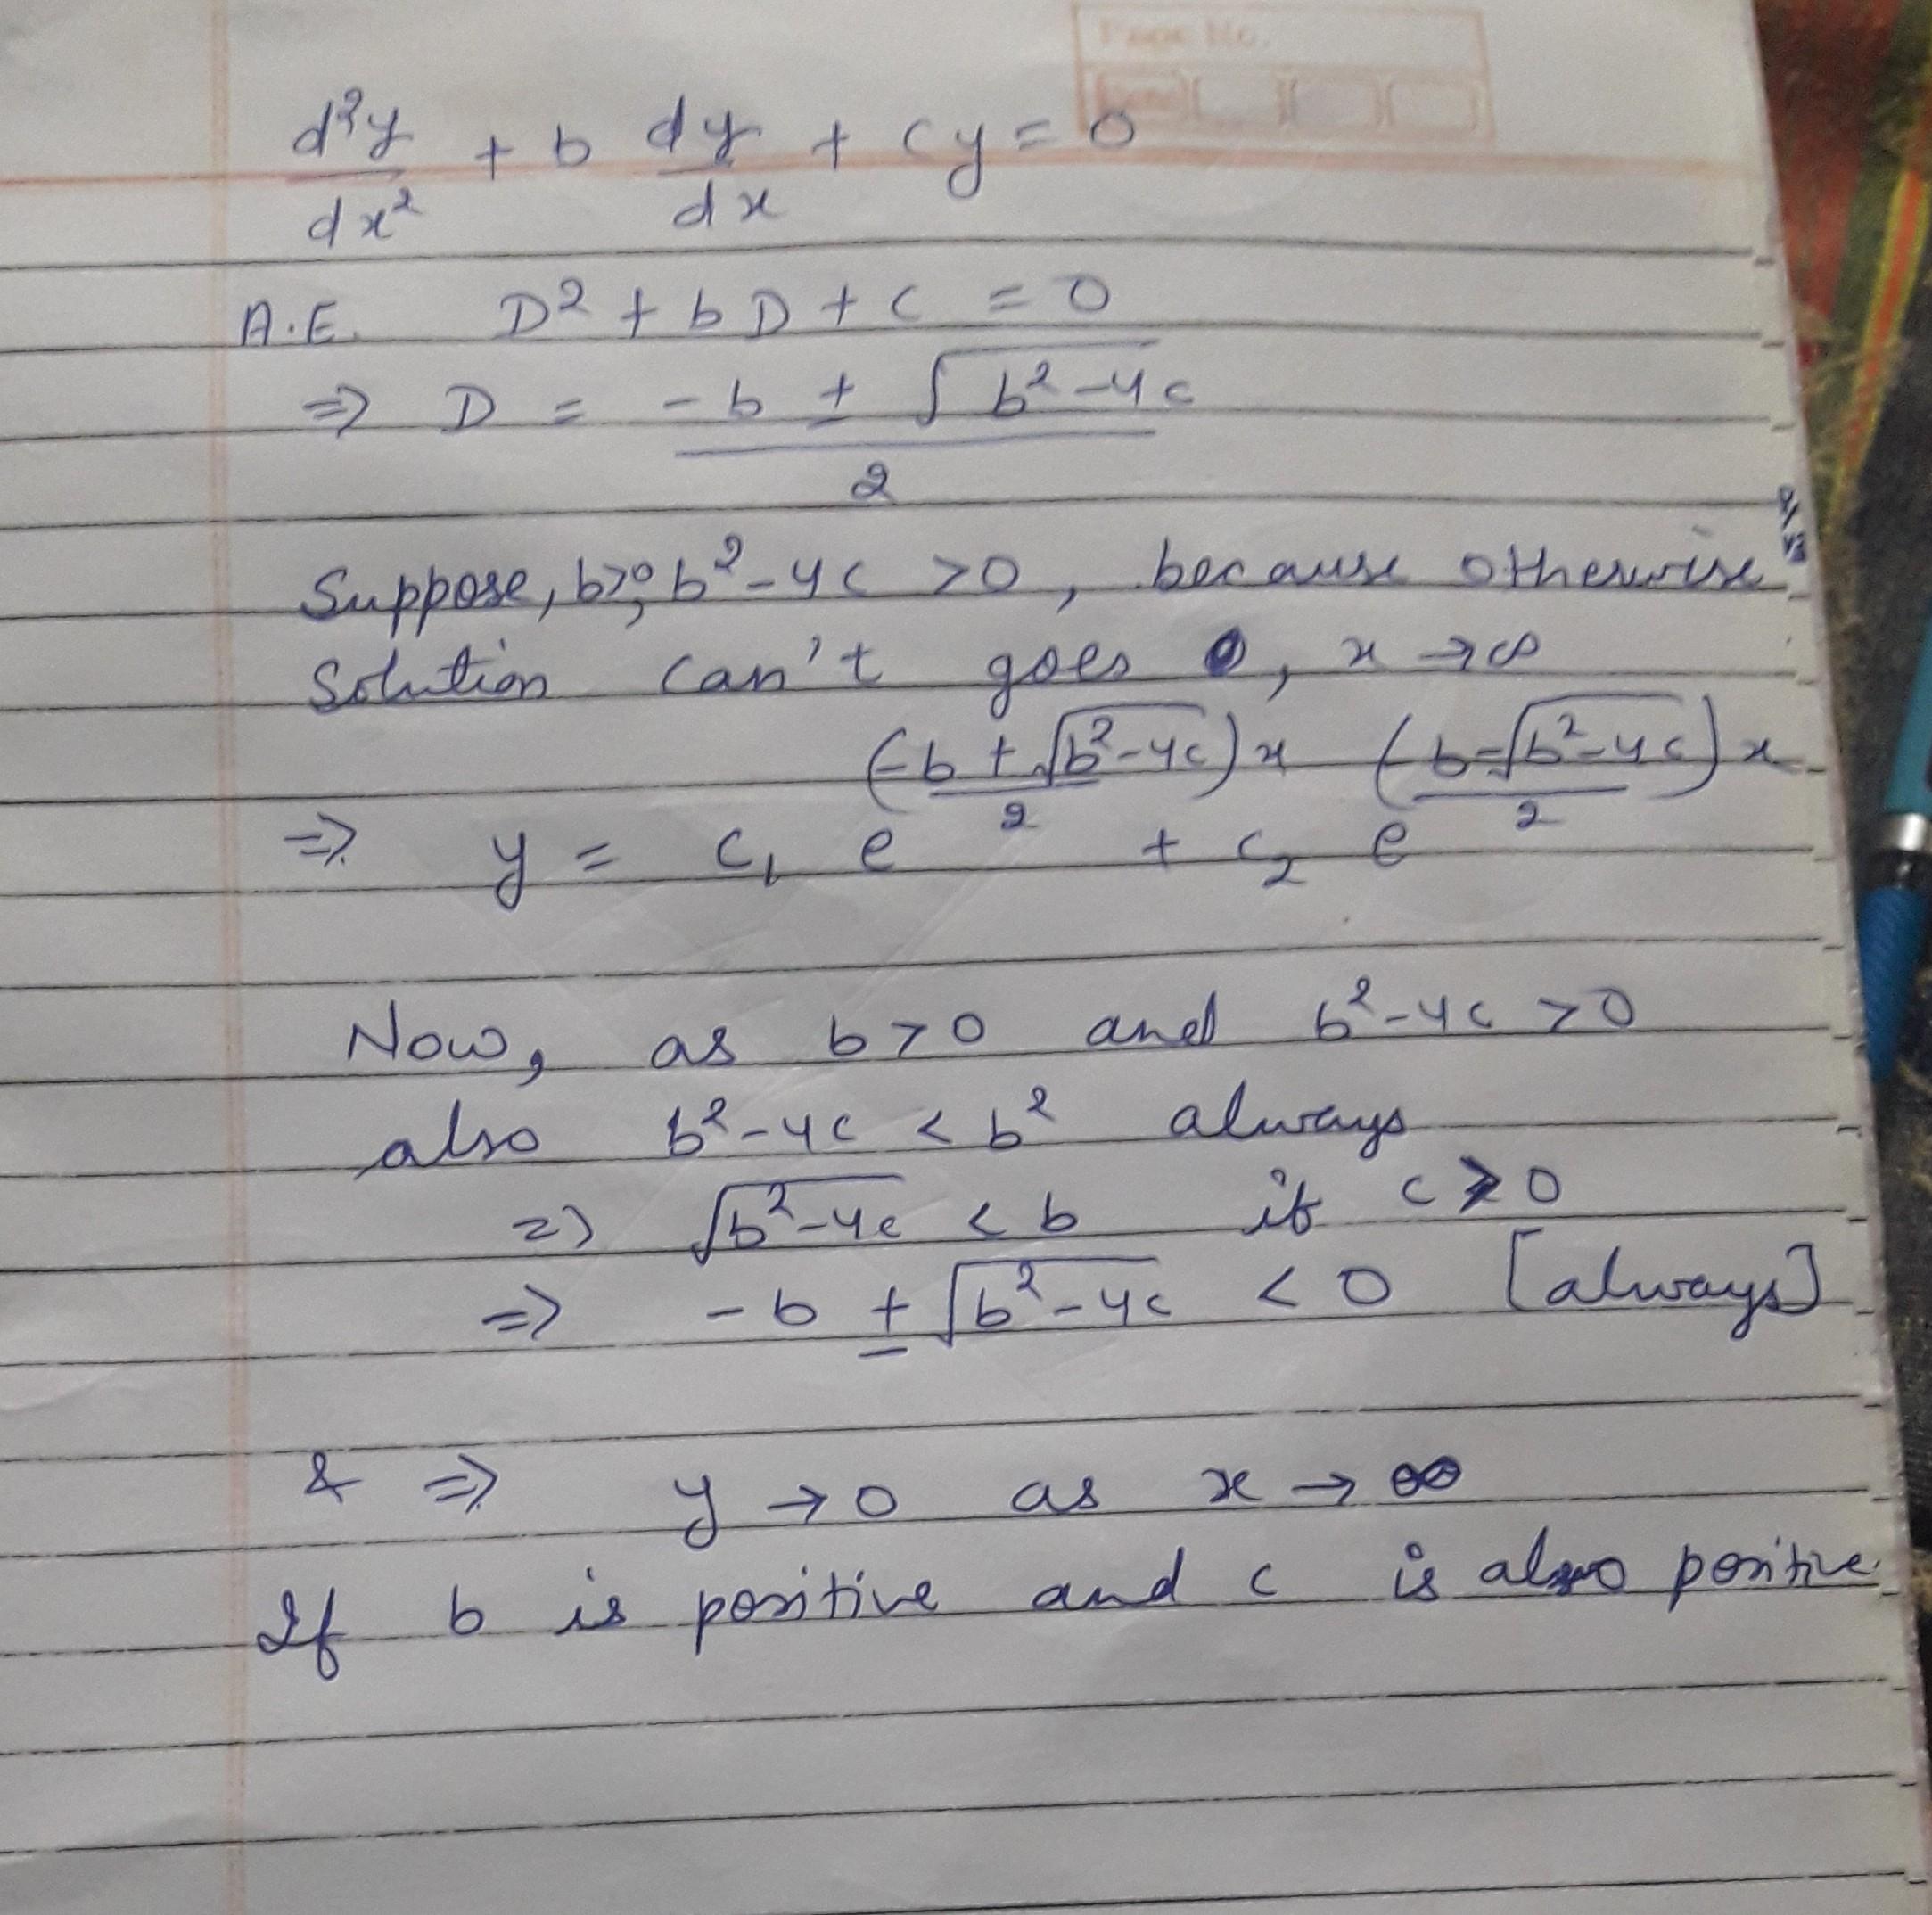 Page No.
Date
d²y/dx² + b dy/dx + cy = 0
A.E. D² + bD + c = 0
⇒ D = (-b ± √(b²-4c))/2
Suppose, b>0; b²-4c >0, because otherwise
solution can't goes 0, x→∞
⇒ y = c₁ e^((-b+√(b²-4c))/2)x + c₂ e^((-b-√(b²-4c))/2)x
Now, as b>0 and b²-4c >0
also b²-4c < b² always
⇒ √(b²-4c) < b if c>0
⇒ -b ± √(b²-4c) < 0 [always]
& ⇒ y→0 as x→∞
If b is positive and c is also positive.